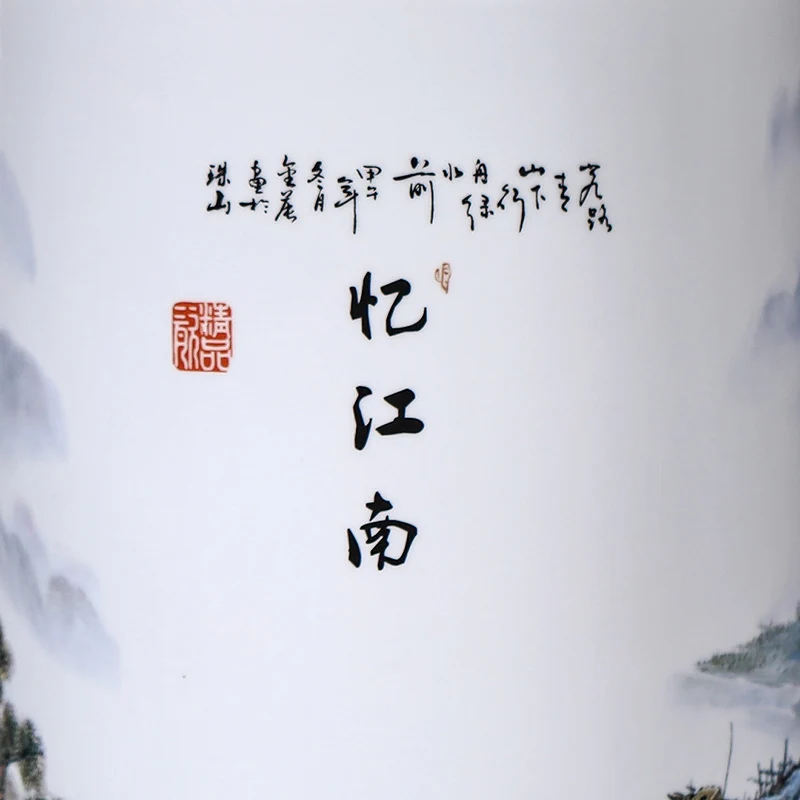 客路
青
山下
行
舟绿
水
前
甲午
年
冬月
金
画於
珠山
忆江南
精品